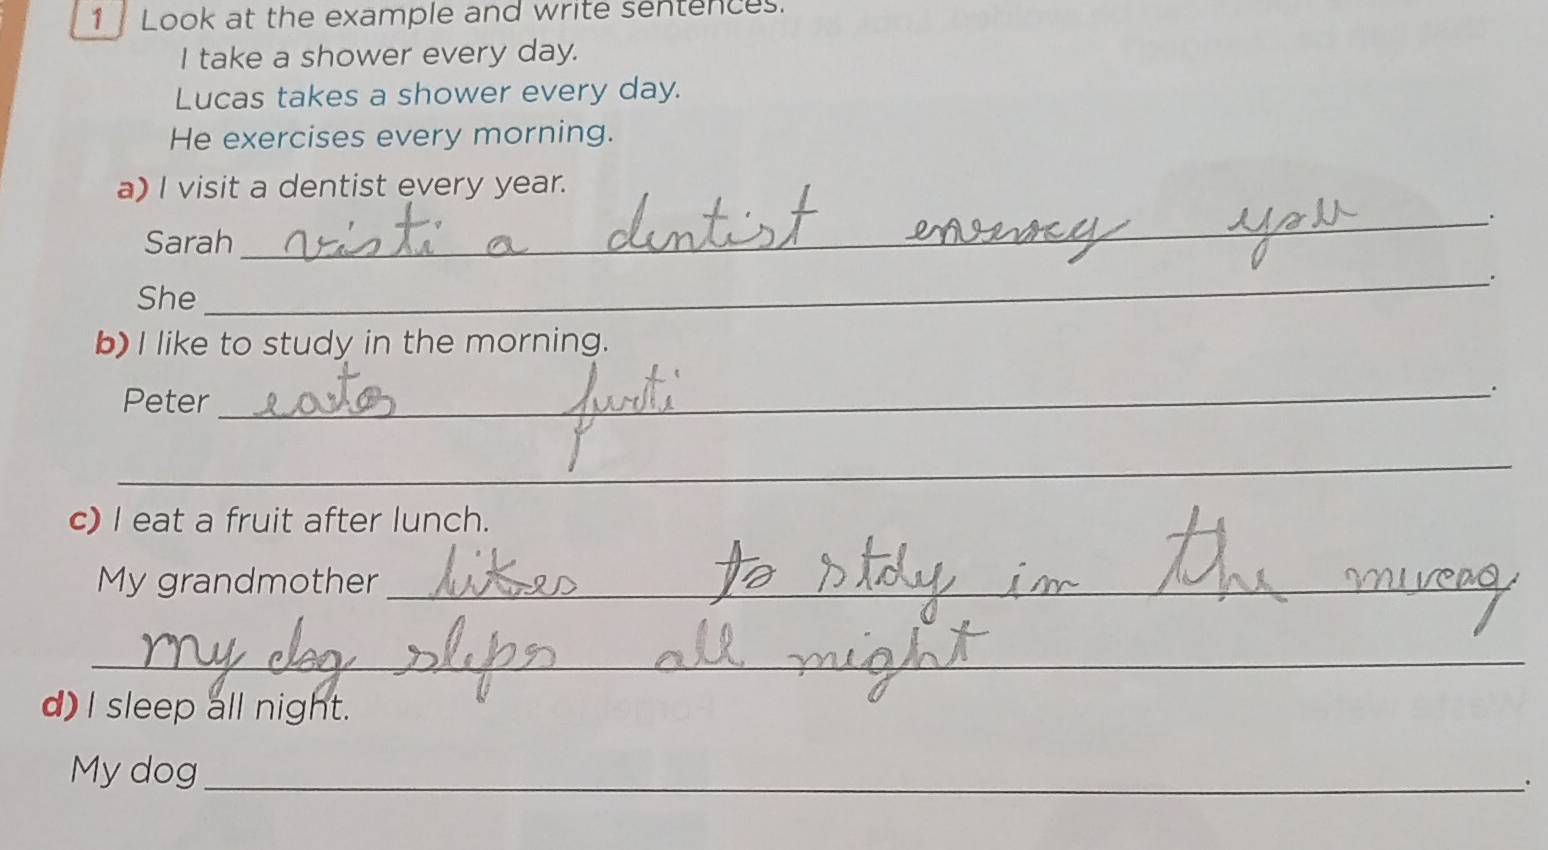 1 Look at the example and write sentences.
I take a shower every day.
Lucas takes a shower every day.
He exercises every morning.
a) I visit a dentist every year.
Sarah visti a dentist enververy your .
She .
b) I like to study in the morning.
Peter eates furti .
c) I eat a fruit after lunch.
My grandmother likes to stdy in the
my dog sleps all night
d) I sleep all night.
My dog .